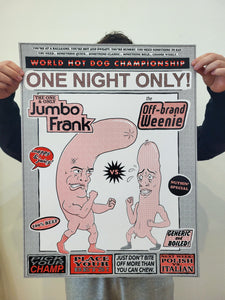 YOU'RE AT A BARBECUE. YOU'RE HOT AND HUNGRY. YOU'RE HUMBLE. YOU NEED SOMETHING TO EAT
WORLD HOT DOG CHAMPIONSHIP
ONE NIGHT ONLY!
THE ONE
& ONLY
Jumbo
Frank
the
Off-brand
Weenie
VS.
NUTHIN'
SPECIAL
100% BEEF
GENERIC
and
BOILED!
CHAMP.
PLACE
YOUR
JUST DON'T BITE
OFF MORE THAN
YOU CAN CHEW.
NEXT WEEK
POLISH
ITALIAN